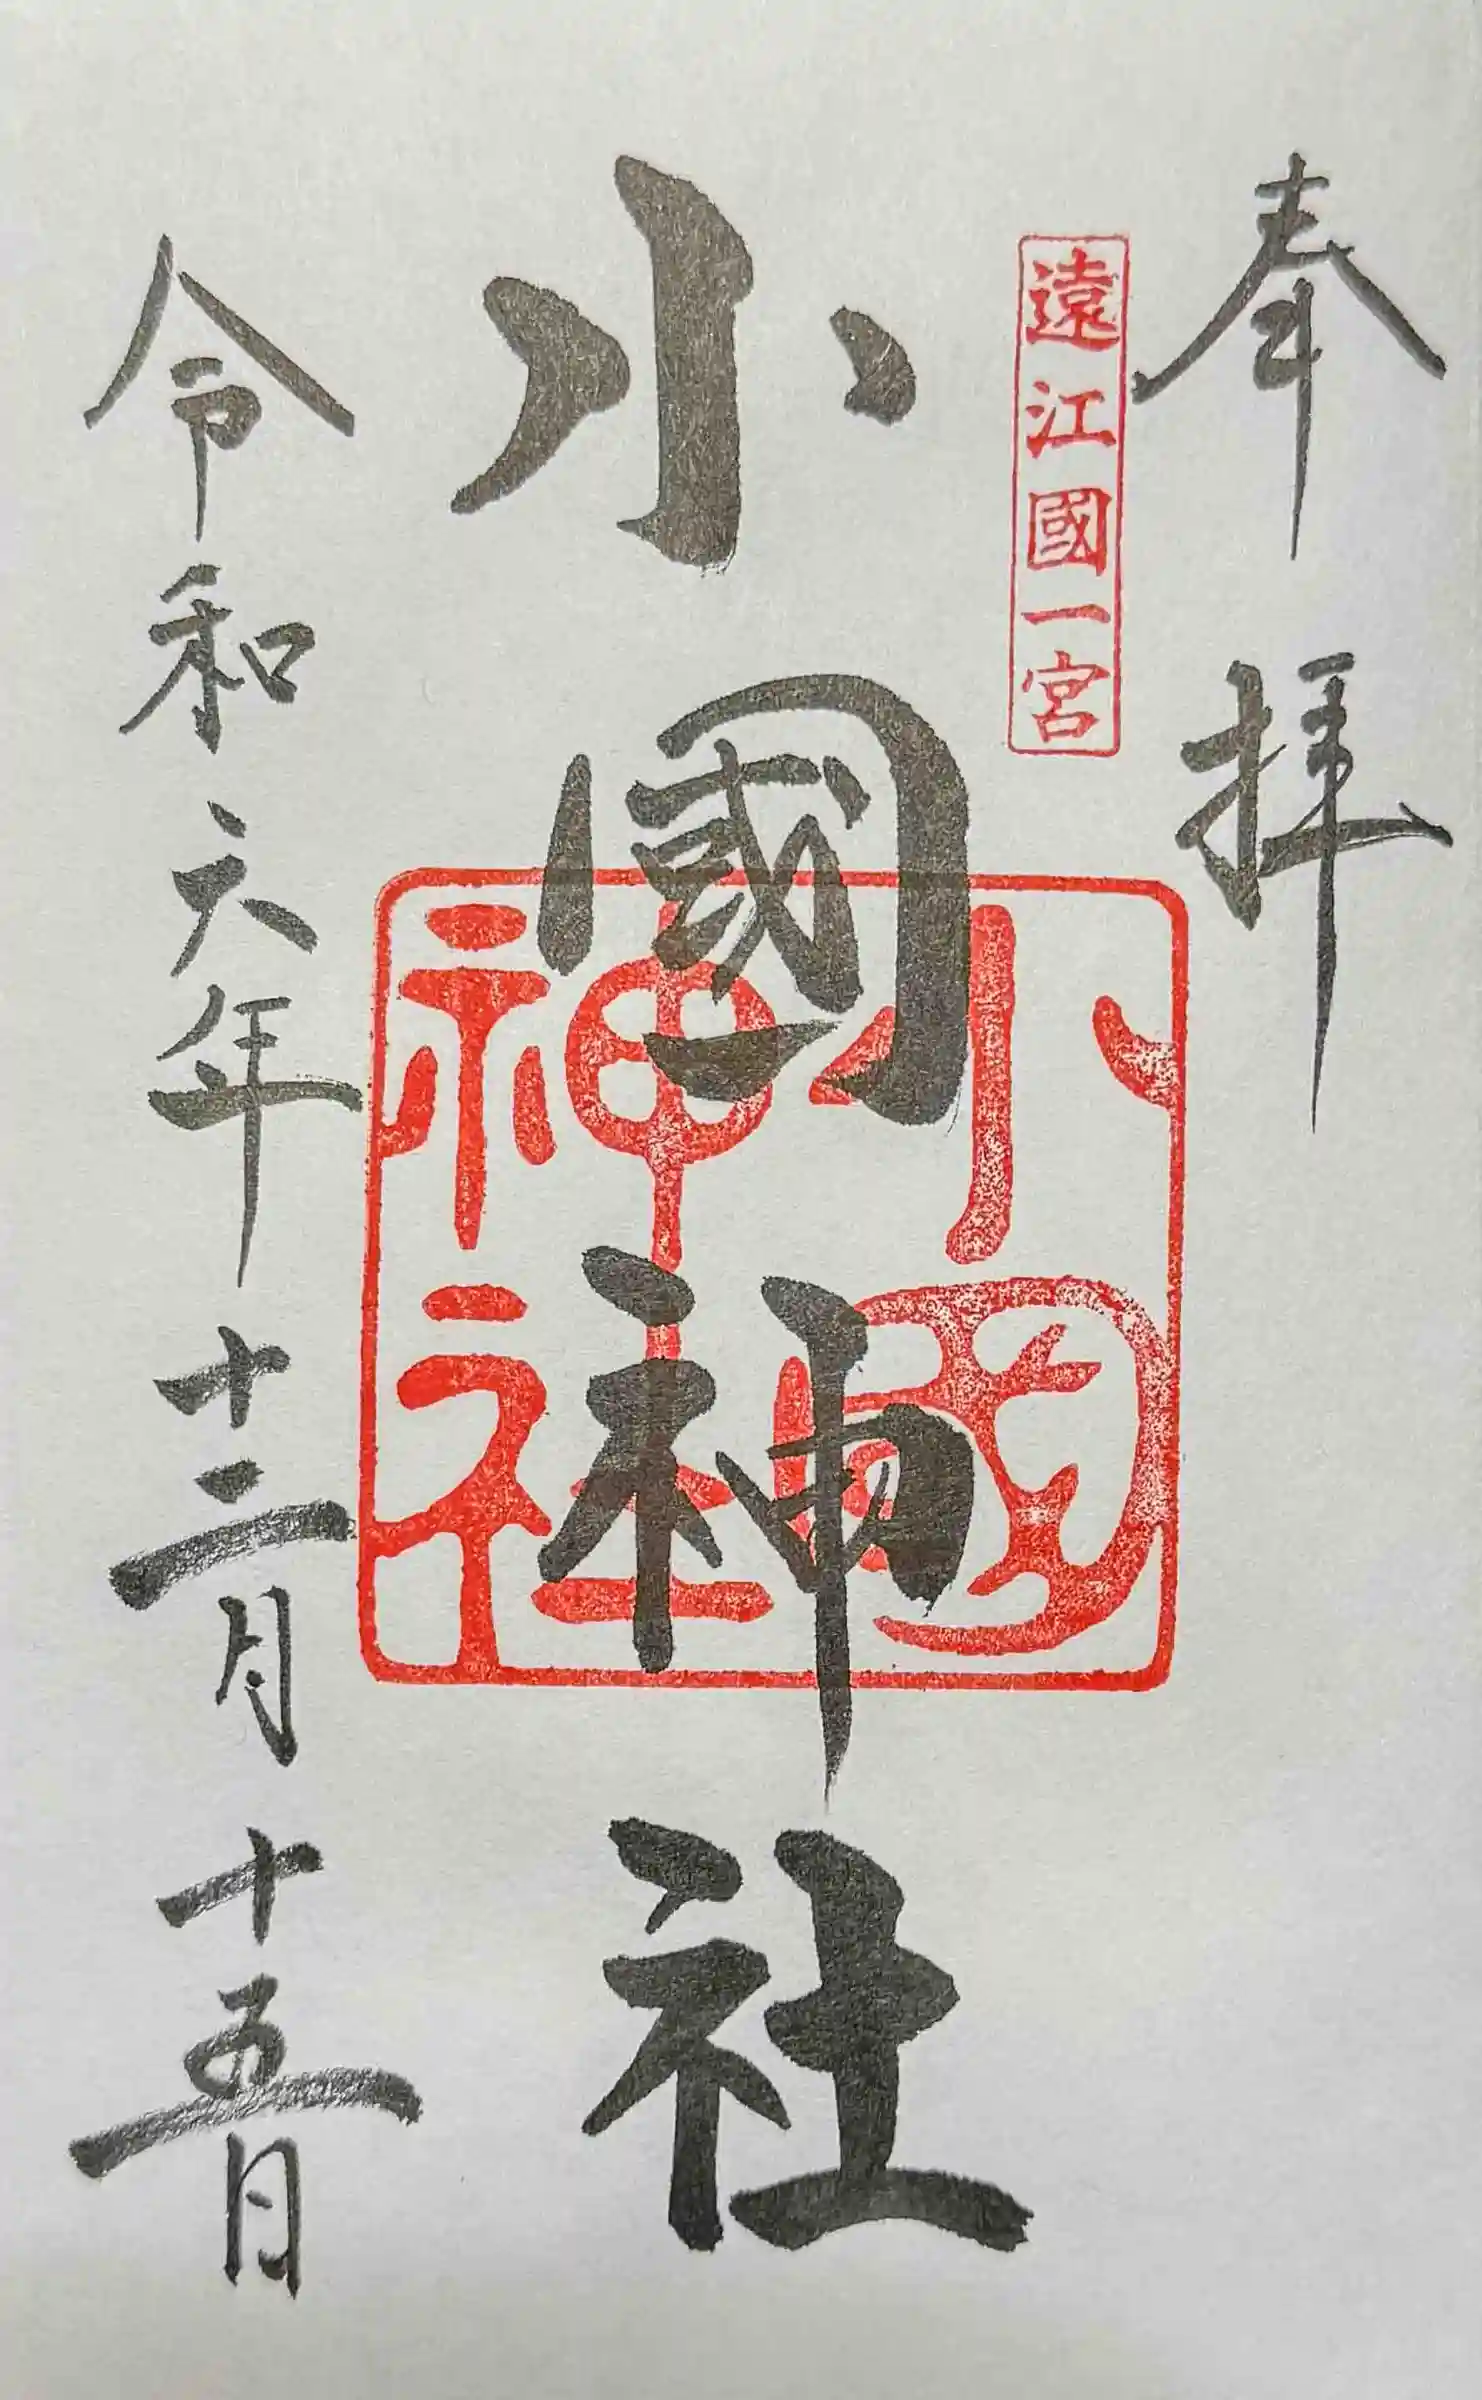 奉拝
遠江國一宮
小國神社
小國
神社
令和六年十二月十五日